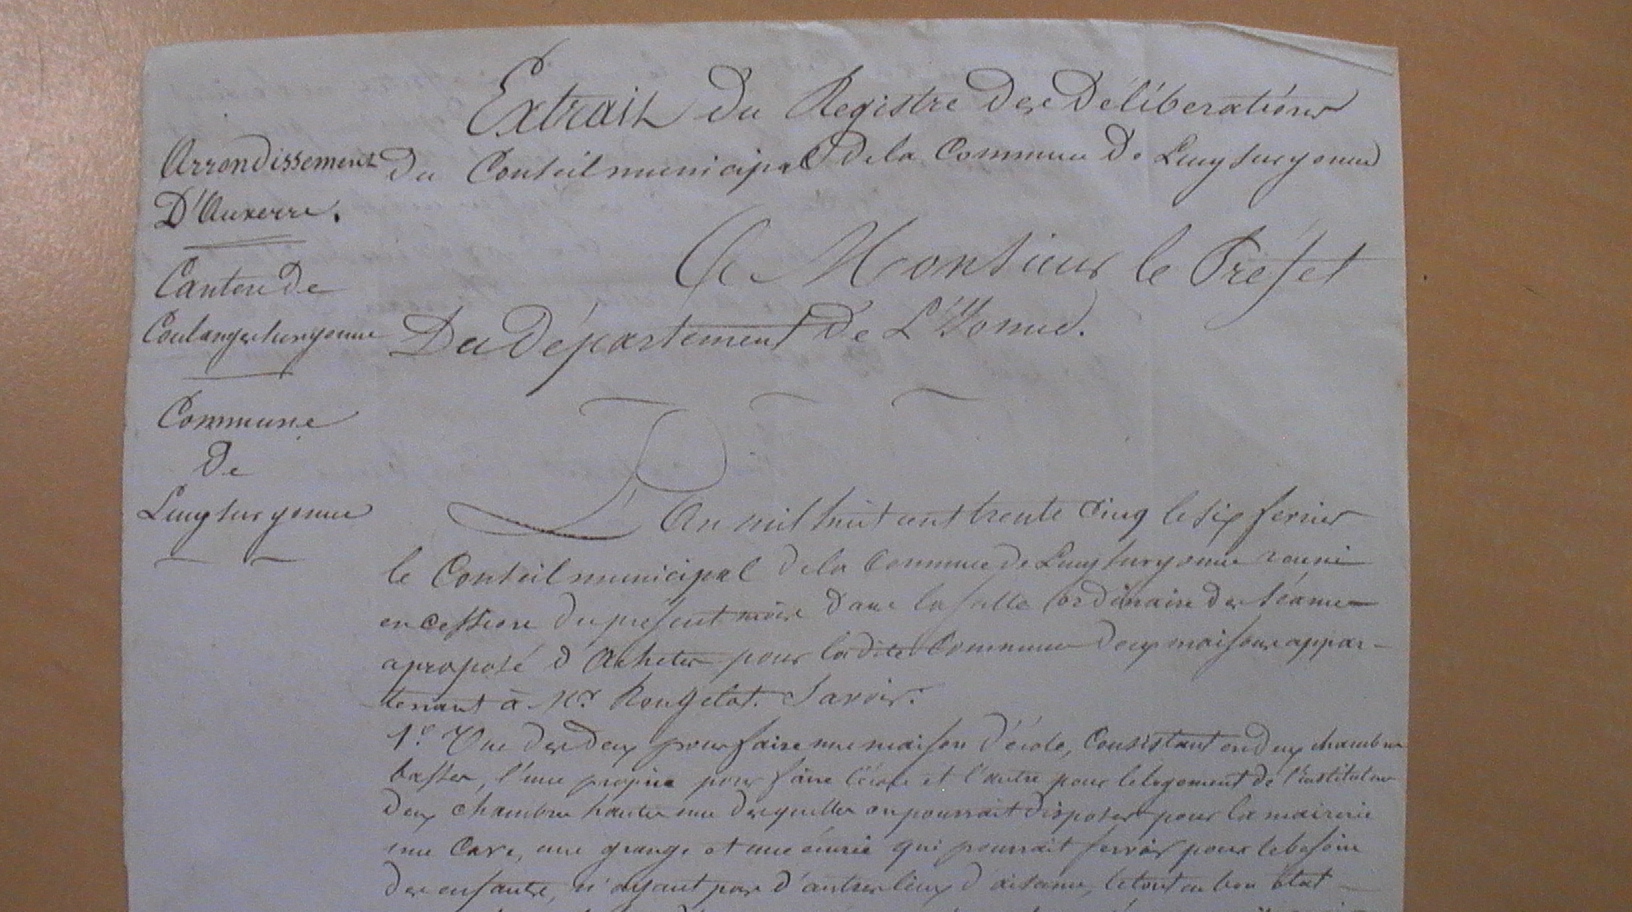 Extrait du Registre des Déliberations
du Conseil municipal de la Commune de Lucy sur yonne
Arrondissement
D'Auxerre.
Canton de
Coulanges sur yonne
Commune
de
Lucy sur yonne
A Monsieur le Préfet
Du Département de L'Yonne.
L'An mil huit cent trente cinq le six fevrier
le Conseil municipal de la Commune de Lucy sur yonne reuni
en cession du présent mois dans la salle ordinaire des séances
a proposé d'Acheter pour la dite Commune deux maisons appar-
tenant à Mr. Rougelot. Savoir:
1.e Une des deux pour faire une maison d'école, Consistant en deux chambres
basses, l'une propice pour faire l'école et l'autre pour le logement de l'instituteur
deux chambres hautes une desquelles on pourrait disposer pour la mairie
une Cave, une grange et une écurie qui pourrait servir pour le besoin
des enfants, n'ayant pas d'autres lieux d'aisance, le tout en bon état